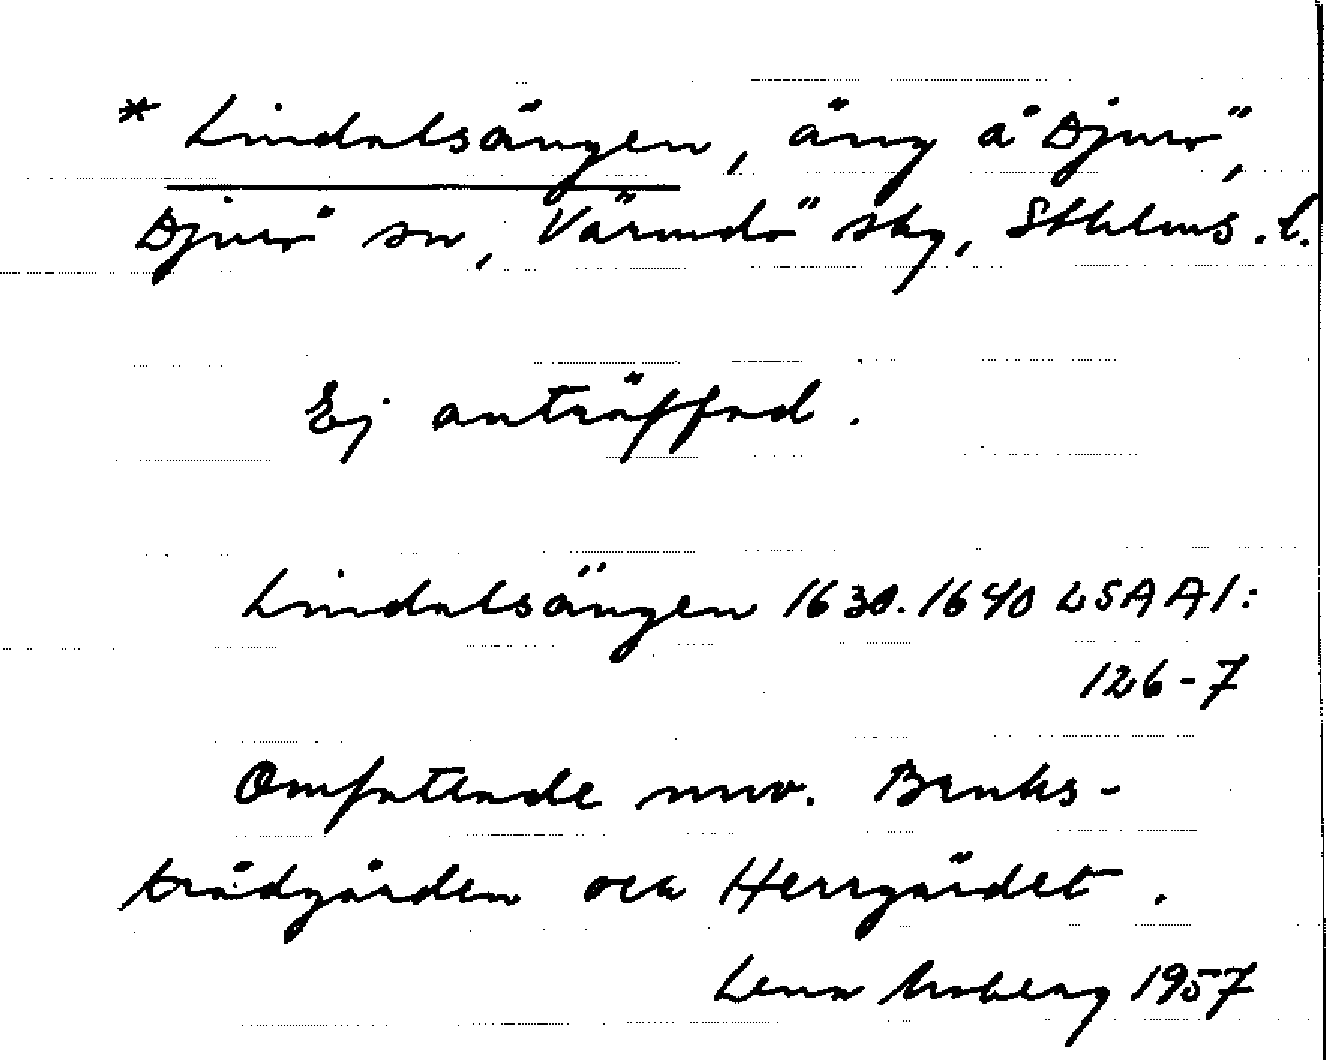 * Lindalsängen, äng å Djurö,
Djurö sn, Värmdö skg, Sthlms. l.
Ej anträffad.
Lindalsängen 1630. 1640 LSA A1:
126-7
Omfattande nuv. Bruks-
trädgården och Herrgärdet.
Lena Moberg 1957